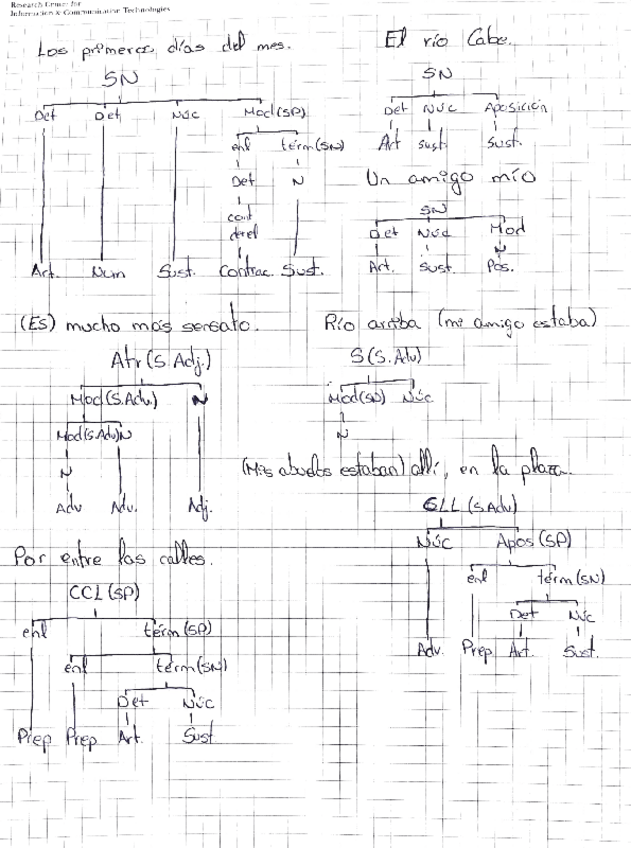 Research Center for
Information & Communication Technologies
Los primeros días del mes.
SN
Det Det Núc Mod(SP)
enl térm(SN)
Det N
cont
deref
Art. Num Sust. Contrac. Sust.
El río Cabe.
SN
Det Núc Aposición
Art sust. Sust.
Un amigo mío
SN
Det Núc Mod
N
Art. Sust. Pos.
(Es) mucho más sensato.
Atr (S.Adj.)
Mod(S.Adv.) N
Mod(S.Adv) N
N
Adv Adv. Adj.
Río arriba (mi amigo estaba)
S(S.Adv)
Mod(SN) Núc
N
(Mis abuelos estaban) allí, en la plaza.
CLL (SAdv)
Núc Apos (SP)
enl térm(SN)
Det Núc
Adv. Prep Art. Sust.
Por entre las calles.
CCL (SP)
enl térm(SP)
enl térm(SN)
Det Núc
Prep Prep Art. Sust